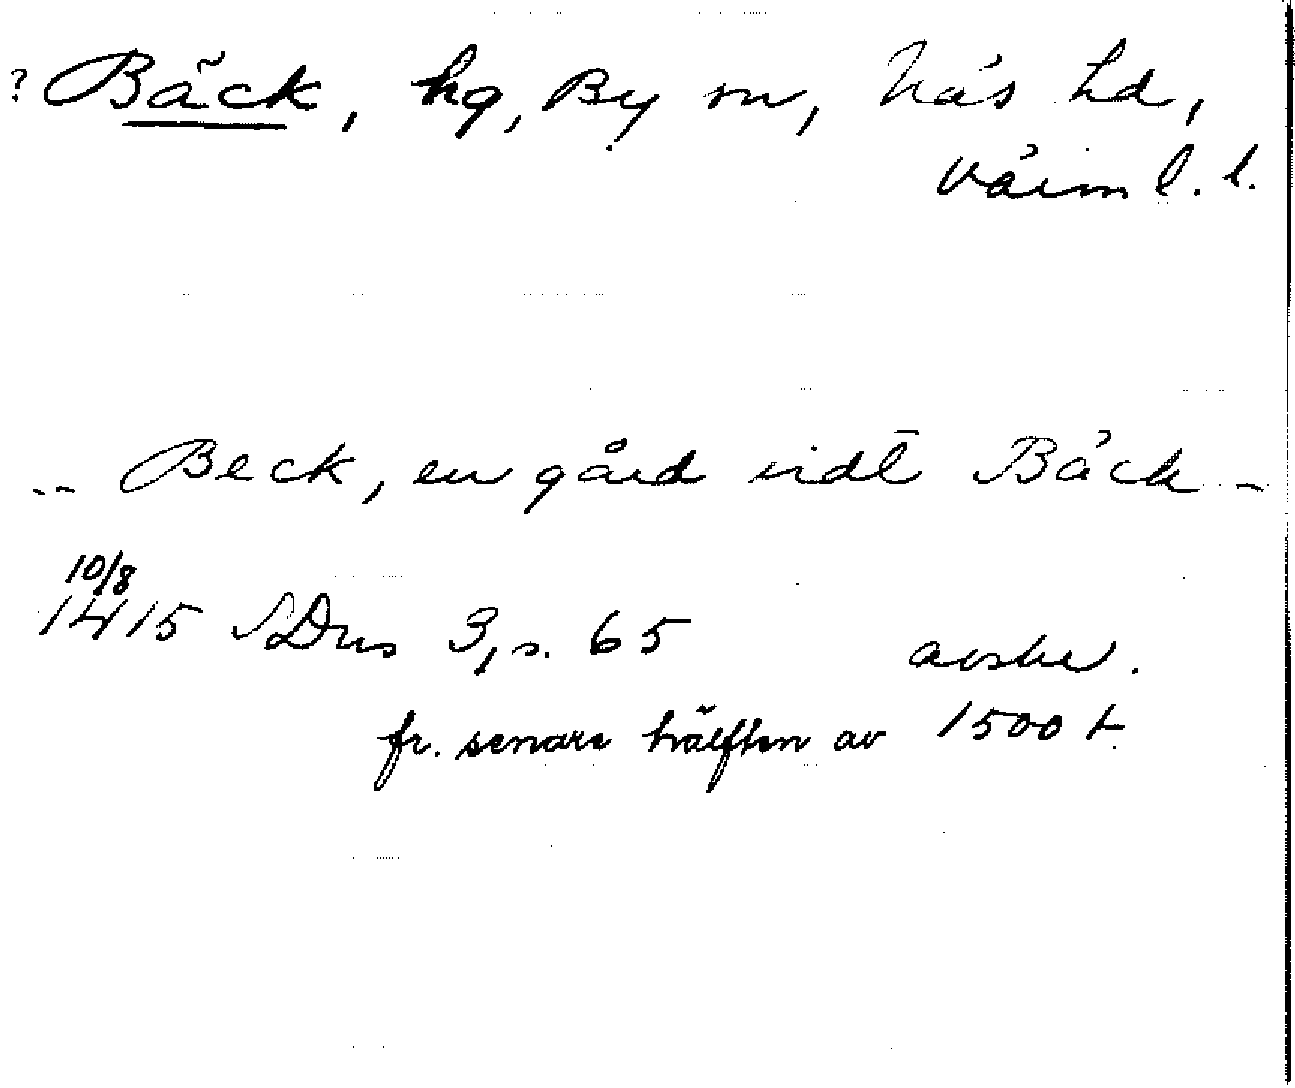 ? Bäck, hg, By sn, Näs hd,
Värml. l.
-- Beck, en gård vidt Bäck --
10/8
1415 SDns 3, s. 65 avskr.
fr. senare hälften av 1500 t.